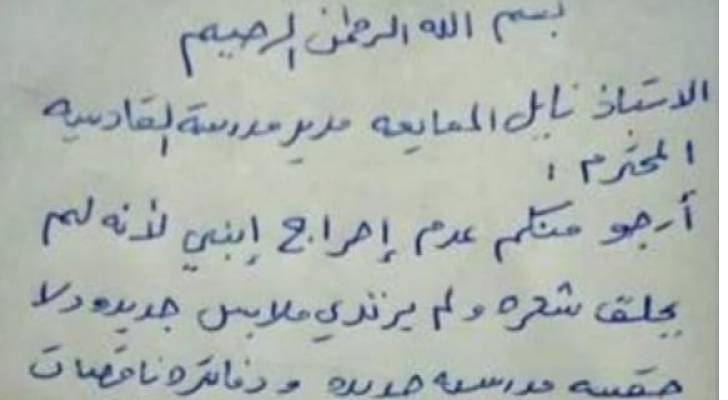 بسم الله الرحمن الرحيم
الاستاذ نايل المعايعه مدير مدرسة القادسيه
المحترم ،
أرجو منكم عدم إحراج إبني لأنه لم
يحلق شعره ولم يرتدي ملابس جديده ولا
حقيبه مدرسيه جديده ودفاتره ناقصات